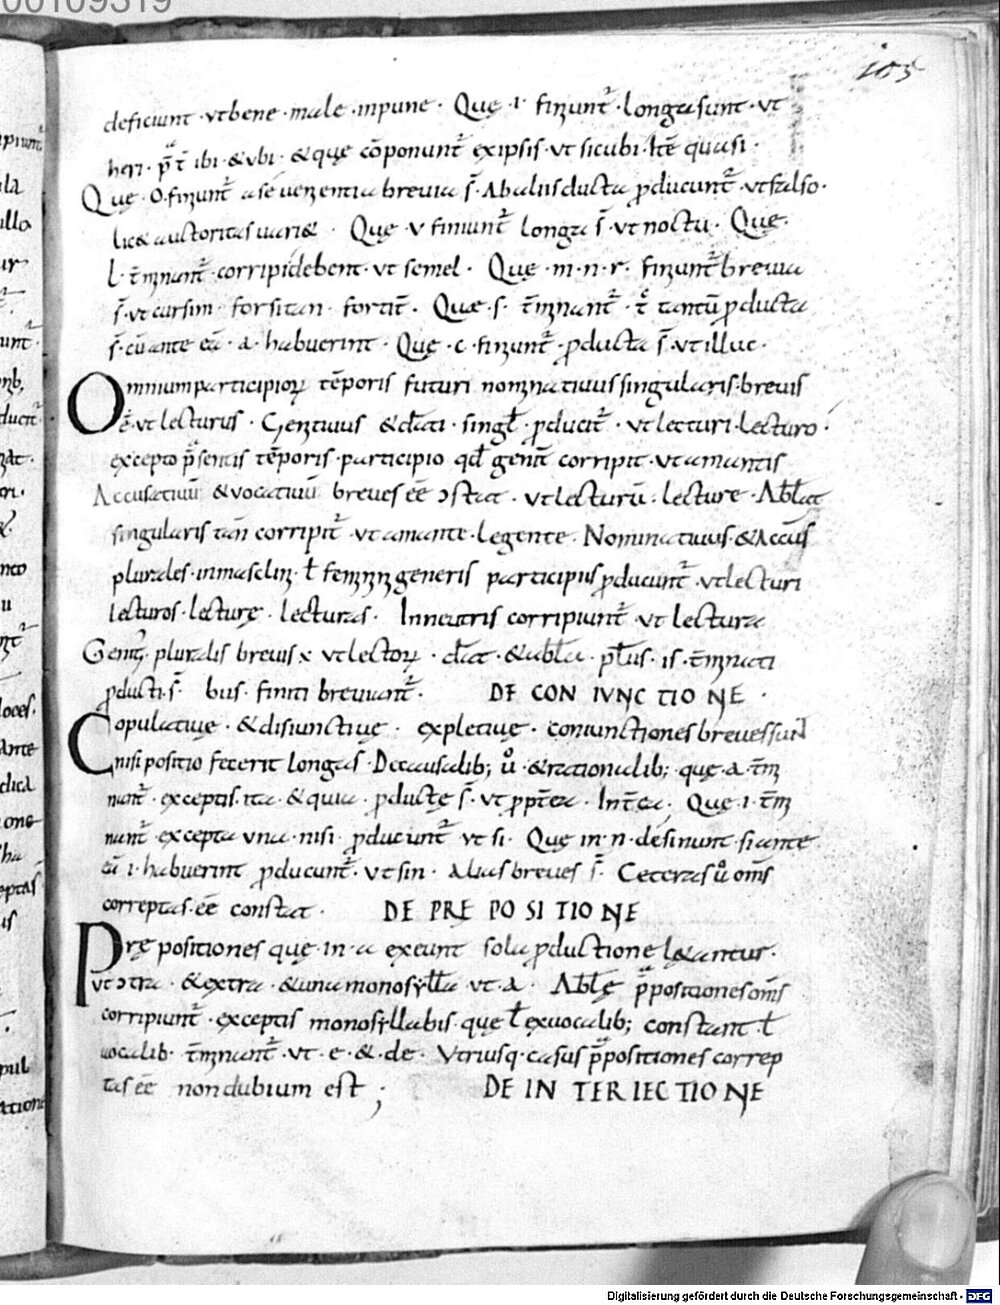 00109319
105
deficiunt · ut bene · male · inpune · Quę · i · finiunt᷑ · longa sunt · ut
heri · p̄t̄ ibi · & ubi · & quę cōponunt᷑ ex ipsis · ut sicubi · Itē quasi ·
Quę · o · finiunt᷑ a se uenientia breuia s̄ · Ab aliis ducta ꝓducunt᷑ · ut falso ·
lic& auctoritas uari& · Quę · u finiunt᷑ longa s̄ · ut noctu · Quę ·
l · t̄minant᷑ · corripi debent · ut semel · Quę · m · n · r · finiunt᷑ breuia
s̄ · ut cursim · forsitan · fortit̄ · Quę · s · t̄minant᷑ · t̊ tantū ꝓducta
s̄ · cū ante eā · a · habuerint · Quę · c · finiunt᷑ · ꝓducta s̄ · ut illuc ·
Omnium participioꝝ tēporis futuri nominatiuus singularis · breuis
ē · ut lecturus · Genitiuus & dati · singł · ꝓducit᷑ · ut lecturi · lecturo ·
excepto p̄sentis tēporis · participio qđ genit̄ corripit · ut amantis
Accusatiuū & uocatiuū breues eē ↄstat · ut lecturū · lecture · Abłat
singularis tan̄ corripit᷑ · ut amante · legente · Nominatiuus · & Accus̄
plurales · in masclin̄ · ł feminini generis participiis ꝓducunt᷑ · ut lecturi
lecturos · lecturę · lecturas · In neutris corripiunt᷑ ut lectura
Genit̄ · pluralis breuis ē ut lectoꝝ · dat̄ · & abła · p̄lus · is · t̄minati
ꝓducti · s̄ · bus · finiti breuiant᷑ · DE CONIUNCTIONE ·
Copulatiuę · & disiunctiuę · expletiuę · coniunctiones breues sunt
nisi positio fecerit longas · De causalib; ů · & rationalib; quę · a · t̄mi
nant᷑ · exceptis · ita · & quia · ꝓductę s̄ · ut ꝓpt̄ea · Int̄ea · Quę · i · t̄mi
nant᷑ · excepta una · nisi · ꝓducunt᷑ ut si · Quę in · n · desinunt · si ante
eā · i · habuerint ꝓducunt᷑ · ut sin · alias breues s̄ · Ceteras ů om̄s
correptas · eē constat · DE PREPOSITIONE
Prępositiones quę · in · a exeunt sola ꝓductione lę&antur ·
ut ↄtra · & extra · & una monosyłła ut · a · Ablę p̄positiones om̄s
corripiunt᷑ · exceptis monosyllabis · quę ł ex uocalib; constant · ł
uocalib · t̄minant᷑ · ut · e · & · de · Vtriusq · casus p̄positiones correp
tas eē non dubium est ; DE INTERIECTIONE
Digitalisierung gefördert durch die Deutsche Forschungsgemeinschaft - DFG